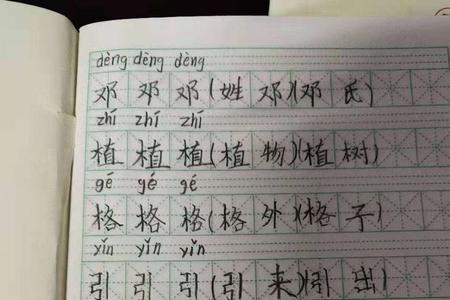 dèng dèng dèng
邓 邓 邓(姓 邓)(邓 氏)
zhí zhí zhí
植 植 植(植 物)(植 树)
gé gé gé
格 格 格(格 外)(格 子)
yǐn yǐn yǐn
引 引 引(引 来)(引 出)